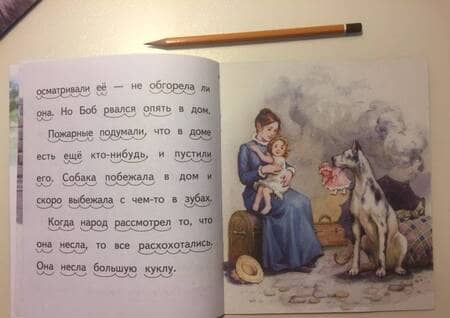 осматривали её — не обгорела ли
она. Но Боб рвался опять в дом.
Пожарные подумали, что в доме
есть ещё кто-нибудь, и пустили
его. Собака побежала в дом и
скоро выбежала с чем-то в зубах.
Когда народ рассмотрел то, что
она несла, то все расхохотались.
Она несла большую куклу.